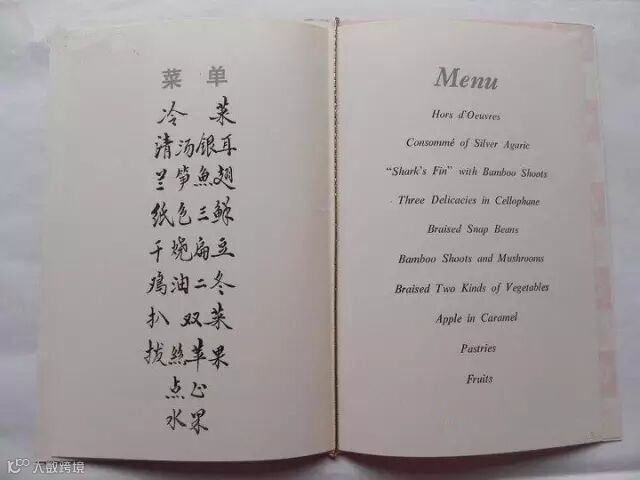 菜单
冷菜
清汤银耳
兰笋魚翅
纸包三鲜
干烧扁豆
鸡油二冬
扒双菜
拔丝苹果
点心
水果
Menu
Hors d'Oeuvres
Consommé of Silver Agaric
"Shark's Fin" with Bamboo Shoots
Three Delicacies in Cellophane
Braised Snap Beans
Bamboo Shoots and Mushrooms
Braised Two Kinds of Vegetables
Apple in Caramel
Pastries
Fruits
10100 大数跨境